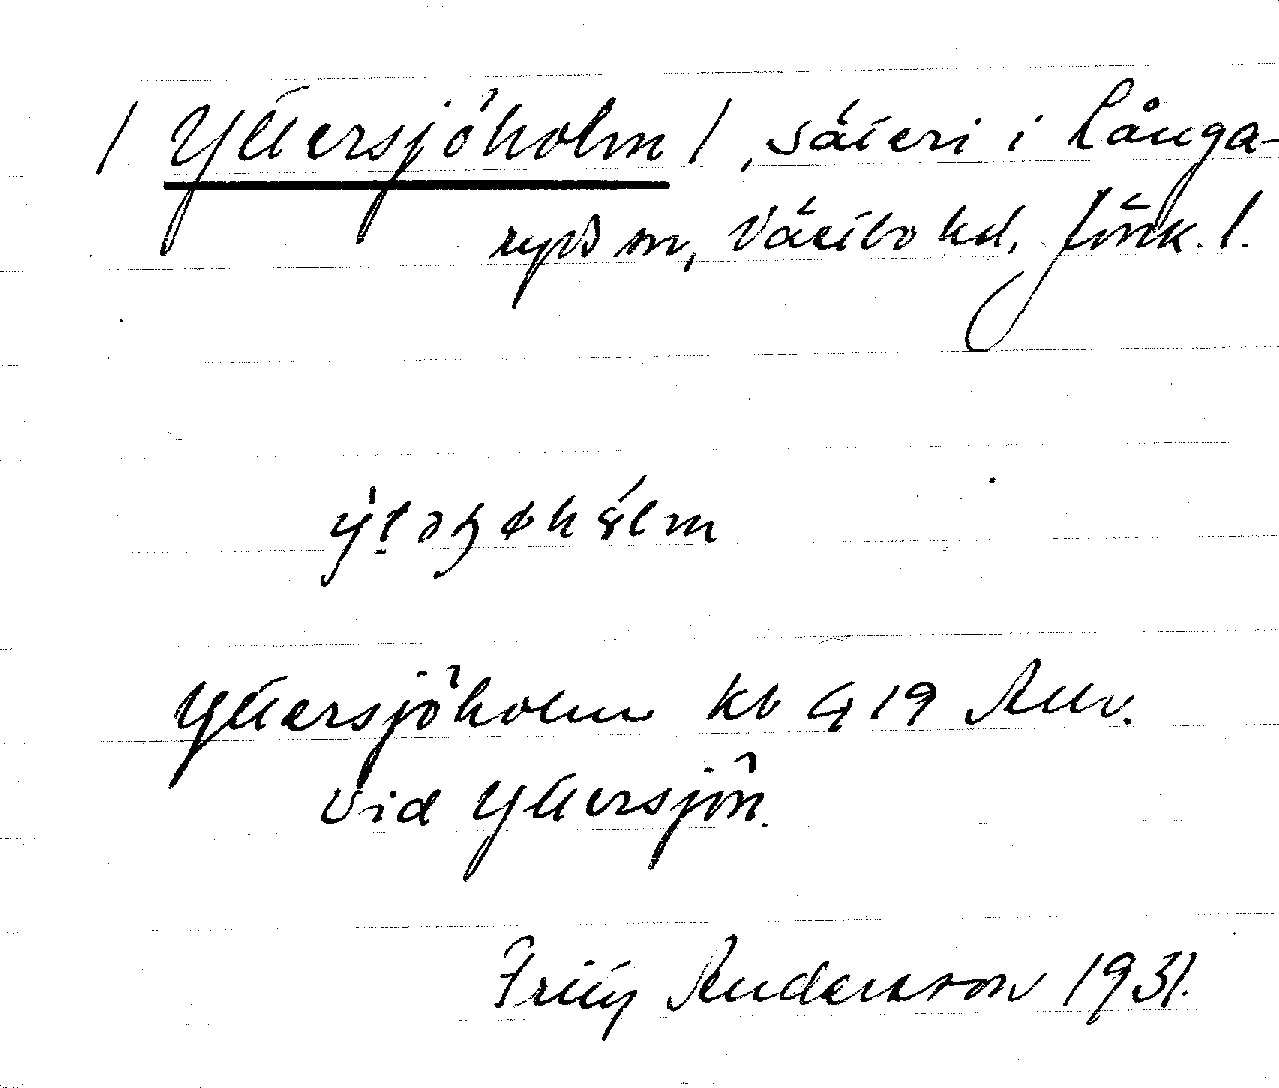 / Yttersjöholm /, säteri i Långa-
ryds sn, Västbo hd, Jönk. l.
Yttersjöholm kb G 19 Allv.
vid Yttersjön.
Fritz Andersson 1931.